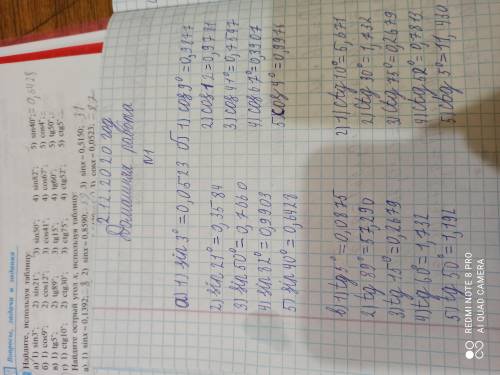 Вопросы, задачи и задания
Найдите, используя таблицу:
а) 1) sin3°; 2) sin21°; 3) sin50°; 4) sin82°; 5) sin40°; = 0,6428
б) 1) cos9°; 2) cos12°; 3) cos41°; 4) cos67°; 5) cos4°;
в) 1) tg5°; 2) tg89°; 3) tg15°; 4) tg60°; 5) tg50°;
г) 1) ctg10°; 2) ctg30°; 3) ctg75°; 4) ctg52°; 5) ctg5°.
Найдите острый угол x, используя таблицу:
а) 1) sinx = 0,1392; 2) sinx = 0,8590; 3) sinx = 0,5150; 31
cosx = 0,0523; = 87
2.12.2020 год
Домашняя работа
N1
а) 1. sin 3° = 0,0523
2) sin 21° = 0,3584
3) sin 50° = 0,7060
4) sin 82° = 0,9903
5) sin 40° = 0,6428
б) 1) cos 9° = 0,9877
2) cos 12 = 0,9781
3) cos 41° = 0,7547
4) cos 67° = 0,3907
5) cos 4° = 0,9976
в) 1) tg 5° = 0,0875
2) tg 89° = 57,290
3) tg 15° = 0,2679
4) tg 60° = 1,732
5) tg 50° = 1,192
2) 1) ctg 10° = 5,671
2) ctg 30° = 1,732
3) ctg 75° = 0,2679
4) ctg 52° = 0,7813
5) ctg 5° = 11,430
REDMI NOTE 8
AI QUAD CAMERA